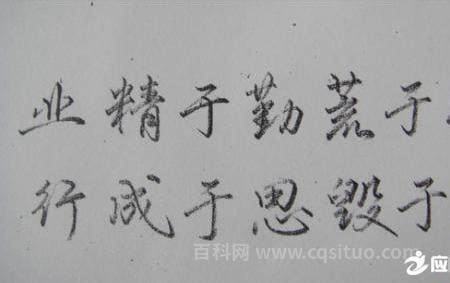 业精于勤荒于
行成于思毁于
百科网 www.cqsituo.com
应